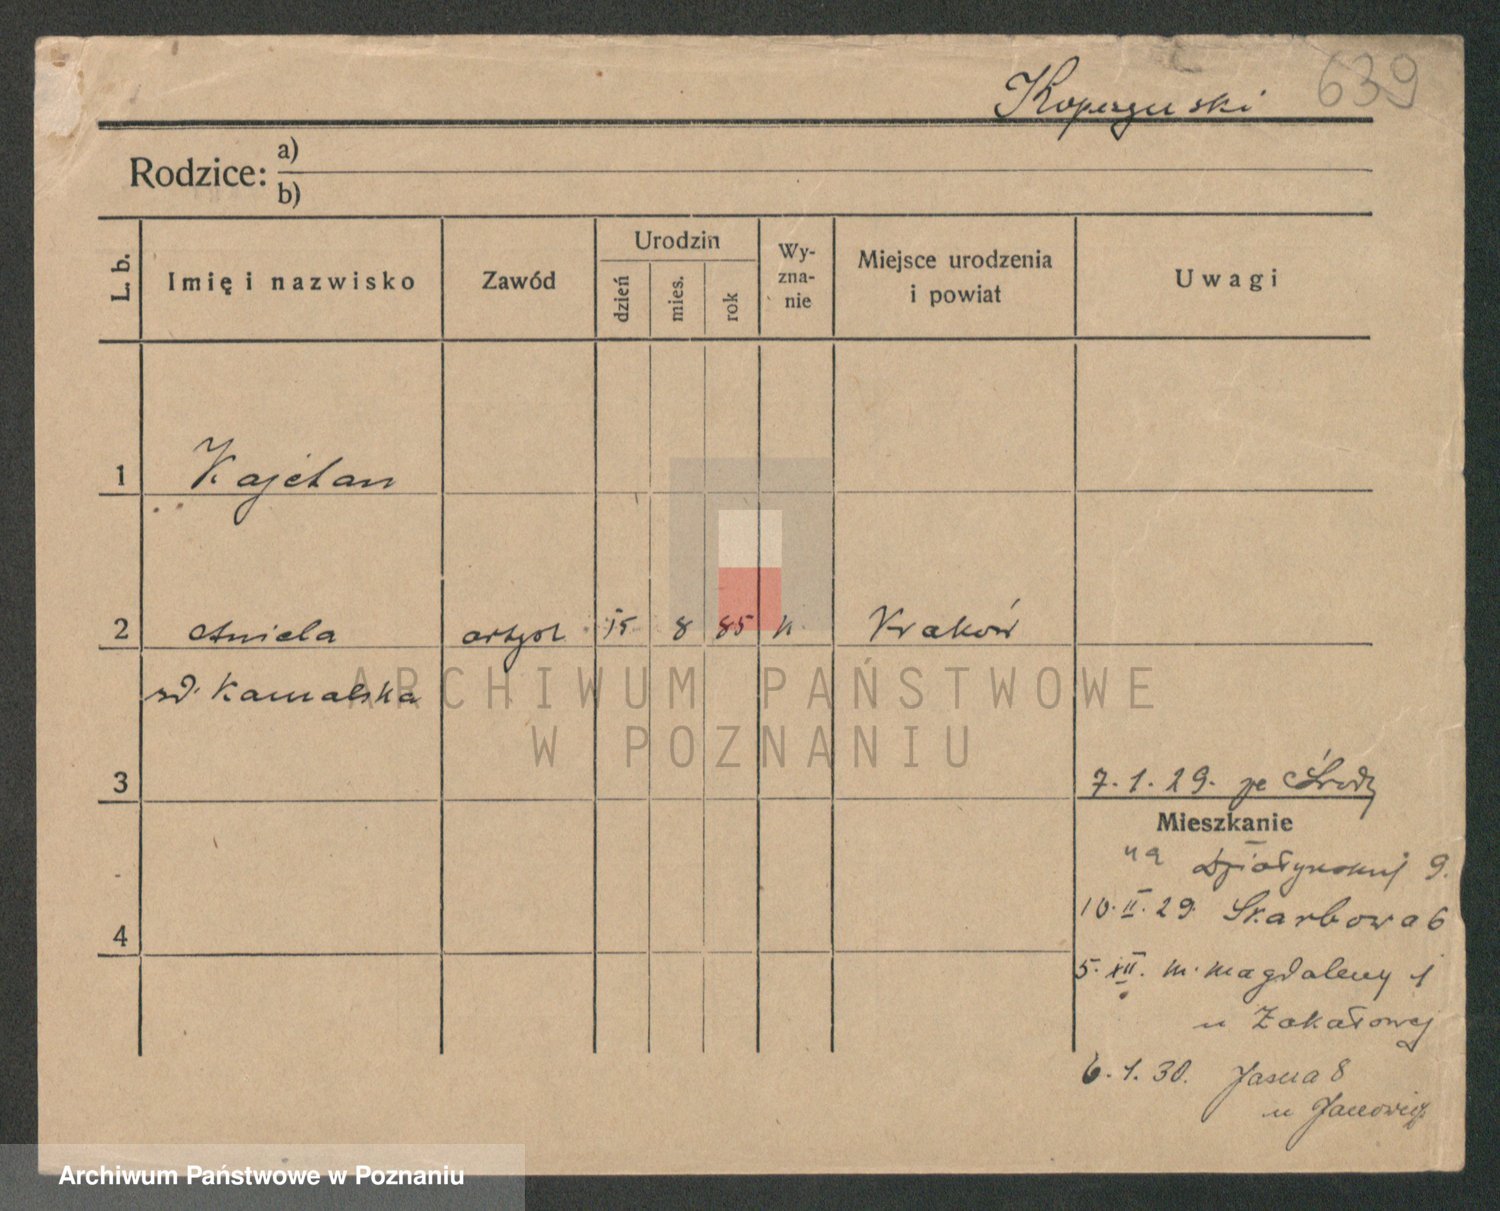 Koperzuski 639
Rodzice: a)
b)
L. b. Imię i nazwisko Zawód Urodzin dzień mies. rok Wy-zna-nie Miejsce urodzenia i powiat Uwagi
1 Kajetan
2 Aniela 15 8 85 k Kraków
zd. Kamalska
ARCHIWUM PAŃSTWOWE
W POZNANIU
3 7.1.29. ze Środy
Mieszkanie
na 9.
4 10.II.29 Skarbowa 6
5.XII. m. Magdaleny 1
u Zakałowej
6.1.30. Jasna 8
u
Archiwum Państwowe w Poznaniu